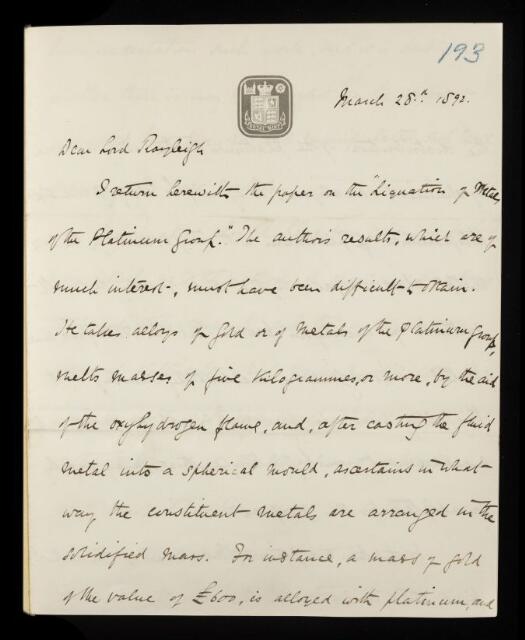 193
ROYAL MINT
March 28th 1892.
Dear Lord Rayleigh
I return herewith the paper on the "Liquation of Metals
of the Platinum Group." The author's results, which are of
much interest, must have been difficult to obtain.
He takes alloys of gold or of metals of the platinum group,
melts masses of five kilogrammes, or more, by the aid
of the oxyhydrogen flame, and, after casting the fluid
metal into a spherical mould, ascertains in what
way the constituent metals are arranged in the
solidified mass. For instance, a mass of gold
of the value of £600, is alloyed with platinum, and